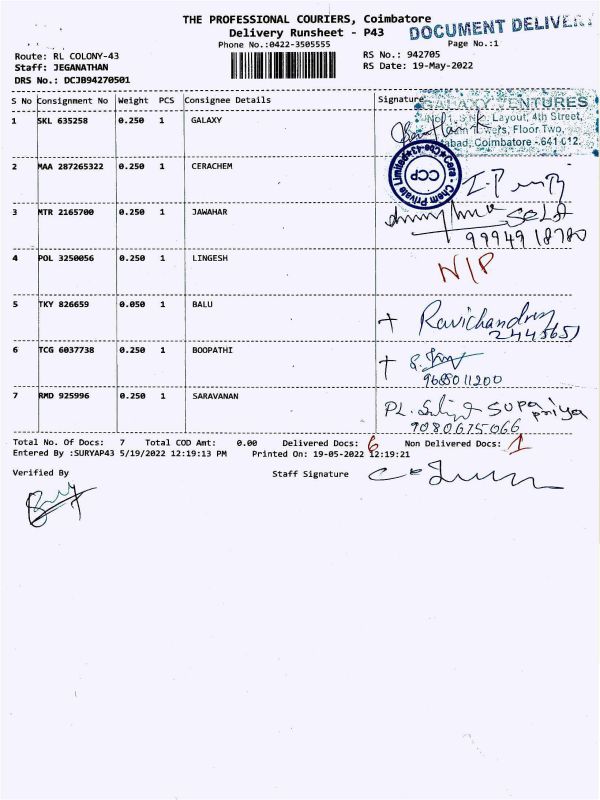 THE PROFESSIONAL COURIERS, Coimbatore
DOCUMENT DELIVERY
Delivery Runsheet - P43
Phone No.:0422-3505555
Page No.:1
Route: RL COLONY-43
RS No.: 942705
Staff: JEGANATHAN
RS Date: 19-May-2022
DRS No.: DCJB94270501
S No Consignment No Weight PCS Consignee Details Signature
GALAXY VENTURES
1 SKL 635258 0.250 1 GALAXY
Layout, 4th Street,
Floor Two,
Coimbatore - 641 012.
2 MAA 287265322 0.250 1 CERACHEM
Cera - Chem Private Limited
CCP
3 MTR 2165700 0.250 1 JAWAHAR
9994918780
4 POL 3250056 0.250 1 LINGESH
N/P
5 TKY 826659 0.050 1 BALU
Ravichandran
2445651
6 TCG 6037738 0.250 1 BOOPATHI
9688011200
7 RMD 925996 0.250 1 SARAVANAN
9080675066
Total No. Of Docs: 7 Total COD Amt: 0.00 Delivered Docs: 6 Non Delivered Docs: 1
Entered By :SURYAP43 5/19/2022 12:19:13 PM Printed On: 19-05-2022 12:19:21
Verified By Staff Signature